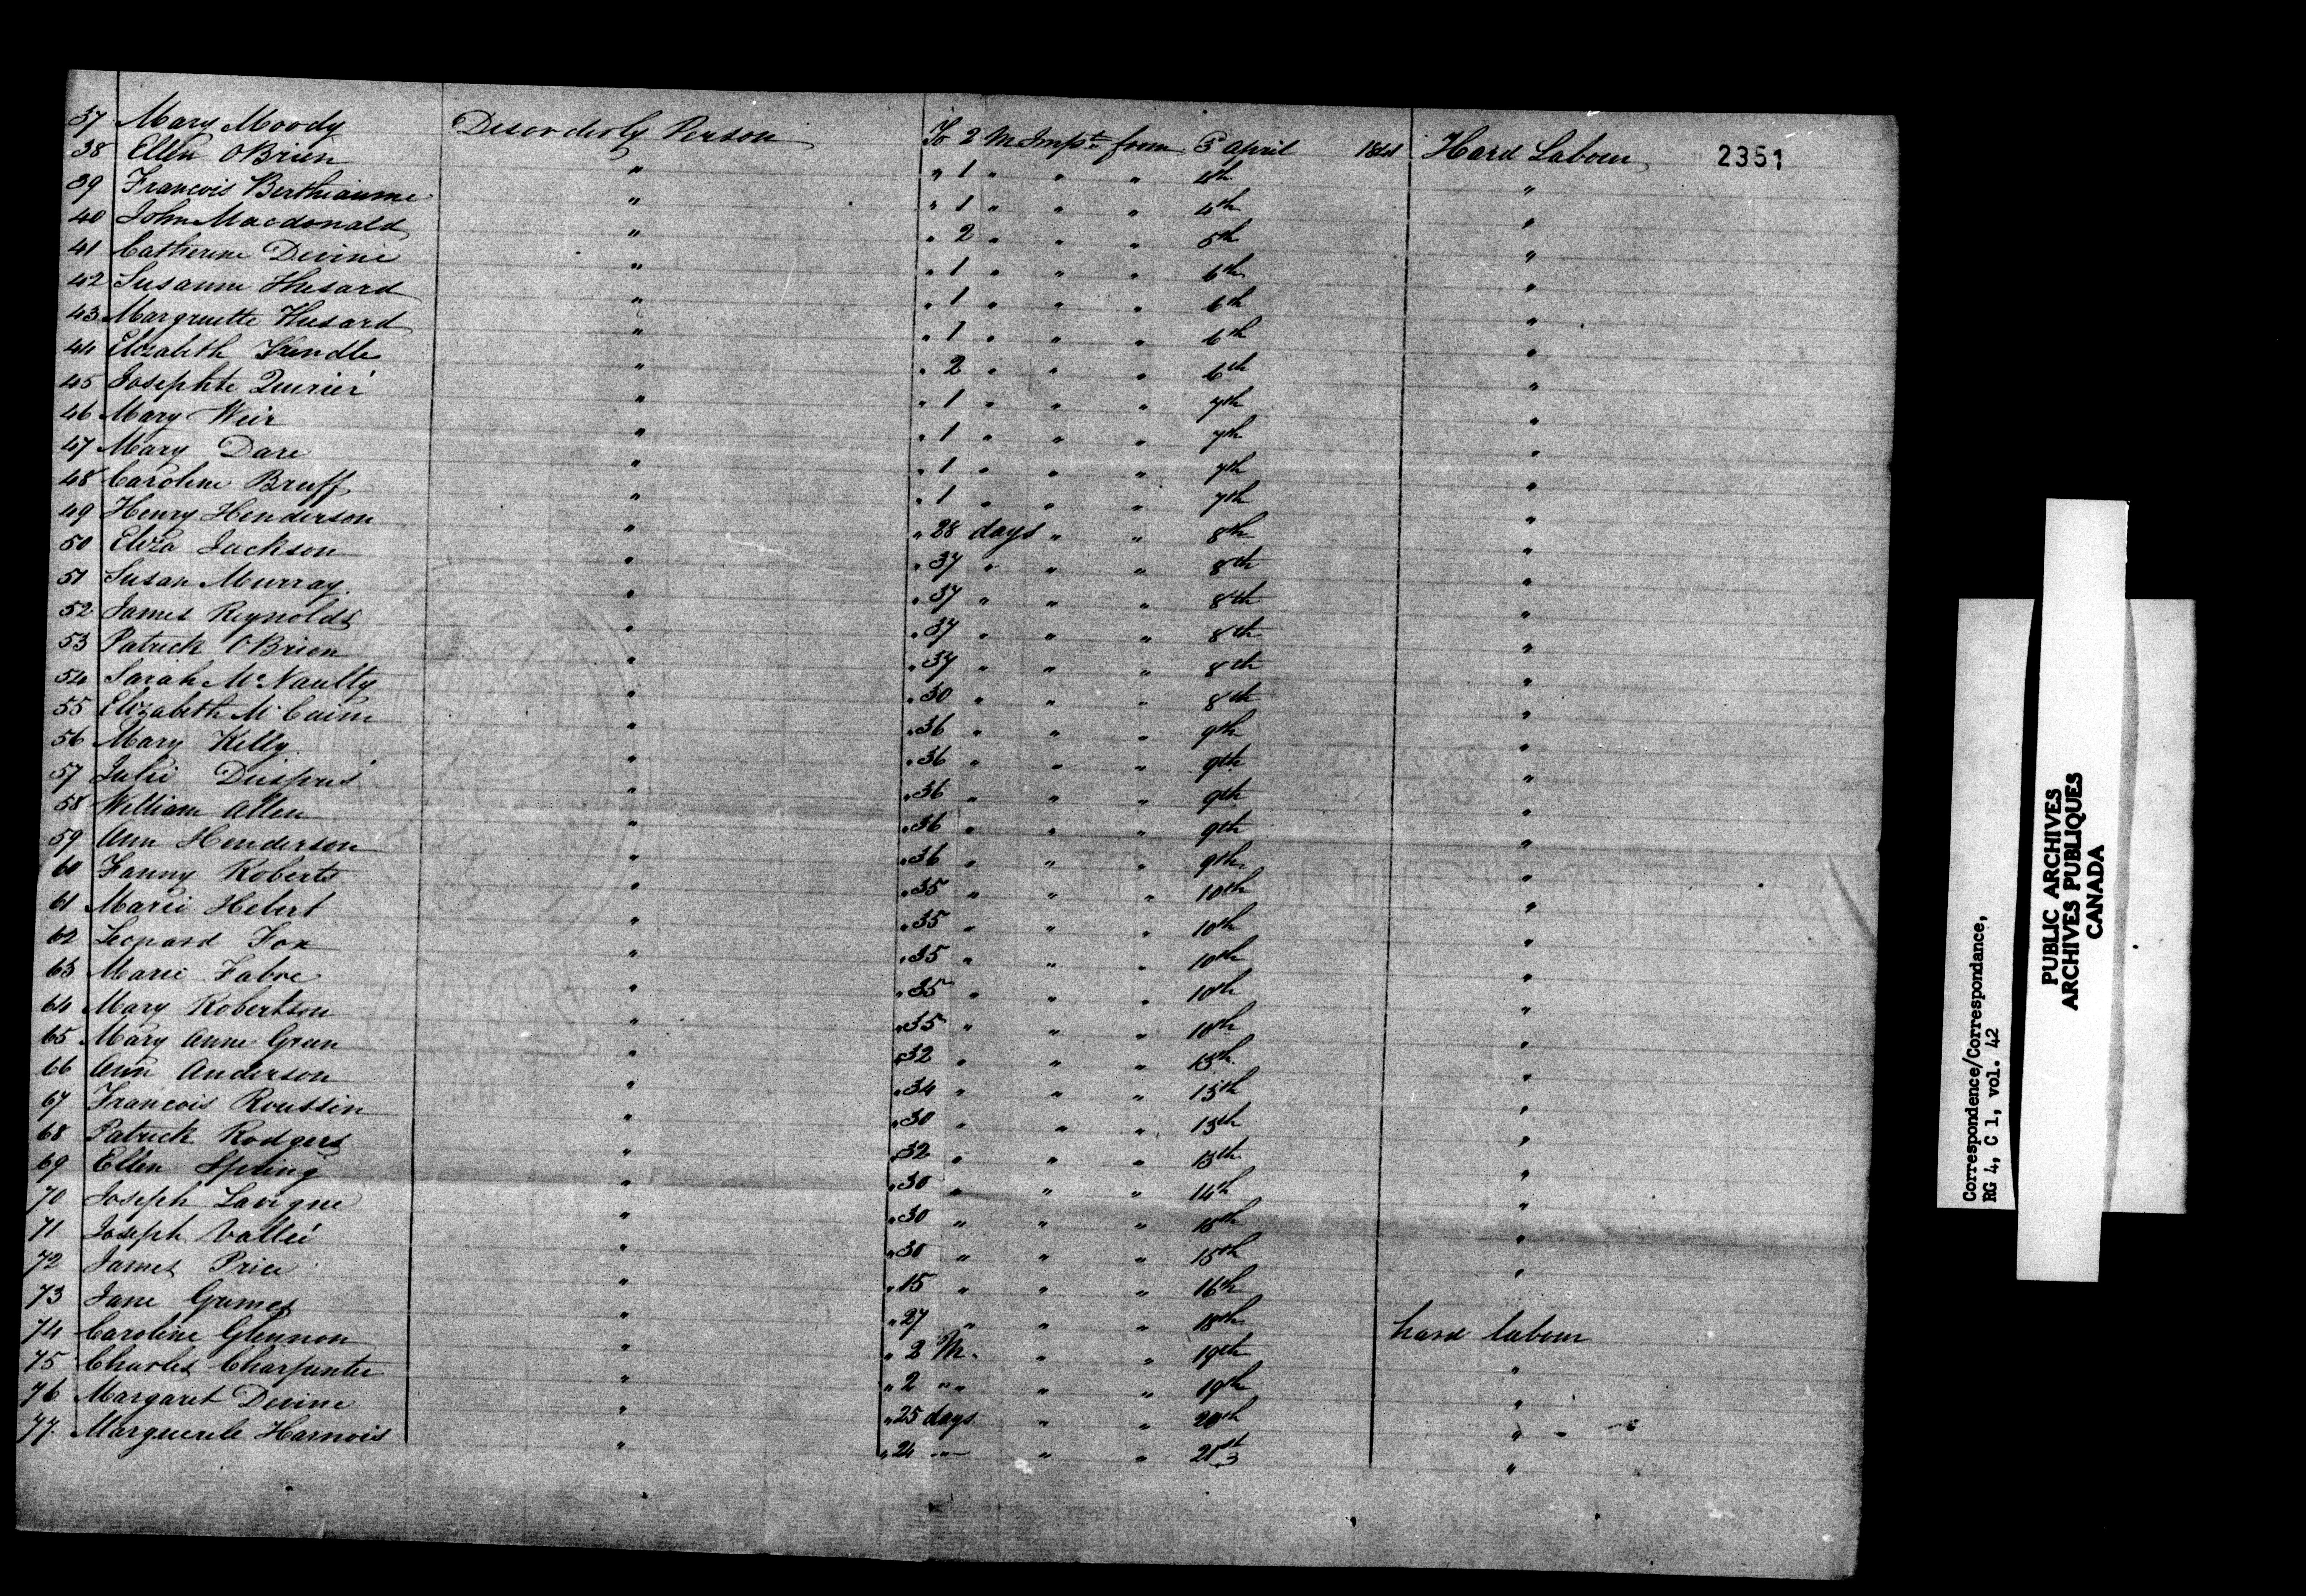 37 Mary Moody Disorderly Person To 2 M Impt. from 3 april 1841 Hard Labour 2351
38 Ellen OBrien " " 1 " " " 4th "
39 Francois Berthiaume " " 1 " " " 4th "
40 John Macdonald " " 2 " " " 5th "
41 Catherine Devine " " 1 " " " 6th "
42 Susanne Husard " " 1 " " " 6th "
43 Margruette Husard " " 1 " " " 6th "
44 Elizabeth " " 2 " " " 6th "
45 Josephte " " 1 " " " 7th "
46 Mary Weir " " 1 " " " 7th "
47 Mary Dare " " 1 " " " 7th "
48 Caroline Bruff " " 1 " " " 7th "
49 Henry Henderson " " 28 days " " 8th "
50 Eliza Jackson " " 37 " " " 8th "
51 Susan Murray " " 37 " " " 8th "
52 James Reynolds " " 37 " " " 8th "
53 Patrick OBrien " " 37 " " " 8th "
54 Sarah McNaully " " 30 " " " 8th "
55 Elizabeth " " 36 " " " 9th "
56 Mary Kelly " " 36 " " " 9th "
57 Julie " " 36 " " " 9th "
58 William Allen " " 36 " " " 9th "
59 Ann Henderson " " 36 " " " 9th "
60 Fanny Roberts " " 35 " " " 10th "
61 Marie Hebert " " 35 " " " 10th "
62 Leonard Fox " " 35 " " " 10th "
63 Marie Fabre " " 35 " " " 10th "
64 Mary Robertson " " 35 " " " 10th "
65 Mary Anne Green " " 32 " " " 13th "
66 Ann Anderson " " 34 " " " 13th "
67 Francois Roussin " " 30 " " " 13th "
68 Patrick Rodgers " " 32 " " " 13th "
69 Ellen Spring " " 30 " " " 14th "
70 Joseph Lavigne " " 30 " " " 15th "
71 Joseph Vallée " " 30 " " " 15th "
72 James Price " " 15 " " " 16th "
73 Jane Grimes " " 27 " " " 18th hard labour
74 Caroline Glennon " " 2 M. " " 19th "
75 Charles Charpentier " " 2 " " " 19th "
76 Margaret Devine " " 25 days " " 20th "
77. Marguerite Harnois " " 24 " " " 21st "
Correspondence/Correspondance,
RG 4, C 1, vol. 42
PUBLIC ARCHIVES
ARCHIVES PUBLIQUES
CANADA